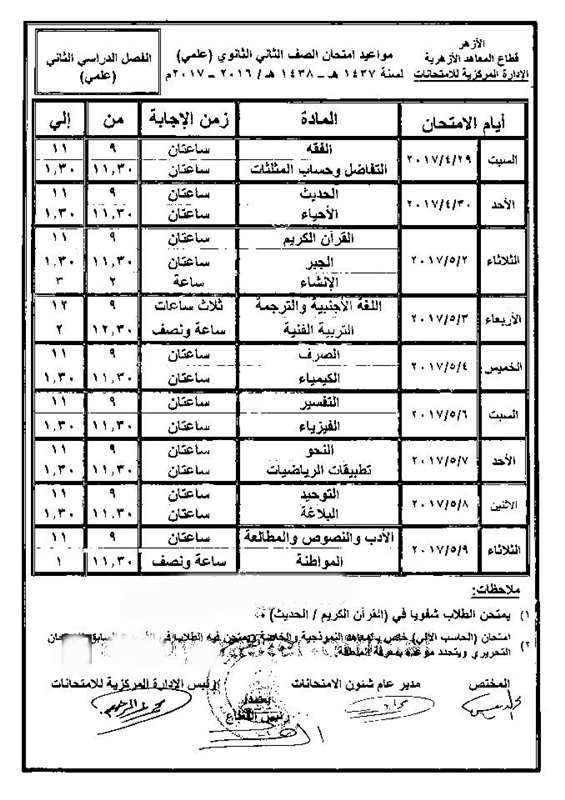 الأزهر
قطاع المعاهد الأزهرية
الإدارة المركزية للامتحانات
مواعيد امتحان الصف الثاني الثانوي (علمي)
لسنة ١٤٣٧ هـ ــ ١٤٣٨ هـ / ٢٠١٦ ــ ٢٠١٧م
الفصل الدراسي الثاني
(علمي)
أيام الامتحان المادة زمن الإجابة من إلي
السبت ٢٠١٧/٤/٢٩ الفقه ساعتان ٩ ١١
التفاضل وحساب المثلثات ساعتان ١١,٣٠ ١,٣٠
الأحد ٢٠١٧/٤/٣٠ الحديث ساعتان ٩ ١١
الأحياء ساعتان ١١,٣٠ ١,٣٠
الثلاثاء ٢٠١٧/٥/٢ القرآن الكريم ساعتان ٩ ١١
الجبر ساعتان ١١,٣٠ ١,٣٠
الإنشاء ساعة ٢ ٣
الأربعاء ٢٠١٧/٥/٣ اللغة الأجنبية والترجمة ثلاث ساعات ٩ ١٢
التربية الفنية ساعة ونصف ١٢,٣٠ ٢
الخميس ٢٠١٧/٥/٤ الصرف ساعتان ٩ ١١
الكيمياء ساعتان ١١,٣٠ ١,٣٠
السبت ٢٠١٧/٥/٦ التفسير ساعتان ٩ ١١
الفيزياء ساعتان ١١,٣٠ ١,٣٠
الأحد ٢٠١٧/٥/٧ النحو ساعتان ٩ ١١
تطبيقات الرياضيات ساعتان ١١,٣٠ ١,٣٠
الاثنين ٢٠١٧/٥/٨ التوحيد ساعتان ٩ ١١
البلاغة ساعتان ١١,٣٠ ١,٣٠
الثلاثاء ٢٠١٧/٥/٩ الأدب والنصوص والمطالعة ساعتان ٩ ١١
المواطنة ساعة ونصف ١١,٣٠ ١
ملاحظات:
١) يمتحن الطلاب شفويا في (القرآن الكريم / الحديث)
٢) امتحان (الحاسب الآلي) خاص بالمعاهد النموذجية والخاصة ويمتحن فيه الطلاب في
التحريري ويتحدد موعده بمعرفة المنطقة
المختص مدير عام شئون الامتحانات رئيس الإدارة المركزية للامتحانات
يعتمد،
رئيس القطاع